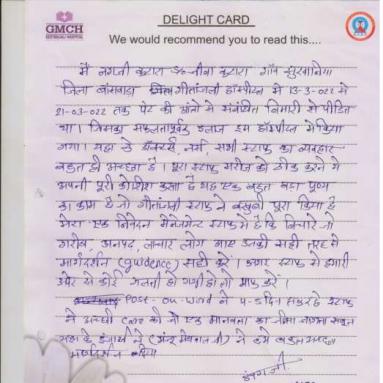 GMCH
DELIGHT CARD
We would recommend you to read this....
में नगजी कटारा S/o जीवा कटारा गाँव सुरवानिया
जिला बांसवाडा गीतांजली हॉस्पीटल में 13-3-022 से
21-03-022 तक पेट की आंतो से संबंधित बिमारी से पीडित
था। जिसका सफलतापूर्वक इलाज इस हॉस्पीटल में किया
गया। यहा के डॉक्टर्स, नर्स, सभी स्टाफ का व्यवहार
बहुत ही अच्छा है। पूरा स्टाफ मरीज को ठीक करने में
अपनी पूरी कोशीश करता है यह एक बहुत बडा पुण्य
का काम है जो गीतांजली स्टाफ ने बखुबी पूरा किया है
मेरा एक निवेदन मेनेजमेन्ट स्टाफ से है कि जो
गरीब, अनपढ, लाचार लोग आए उनकी सही तरह से
मार्गदर्शन (guidence) सही करें। अगर स्टाफ से हमारी
और से कोई गलती हो गयी हो तो माफ करें।
Post-ou word में 4-5 दिन स्टाफ
ने अच्छी care की जो एक मानवता का
ने हमे बहुत अच्छा
मार्गदर्शन किया